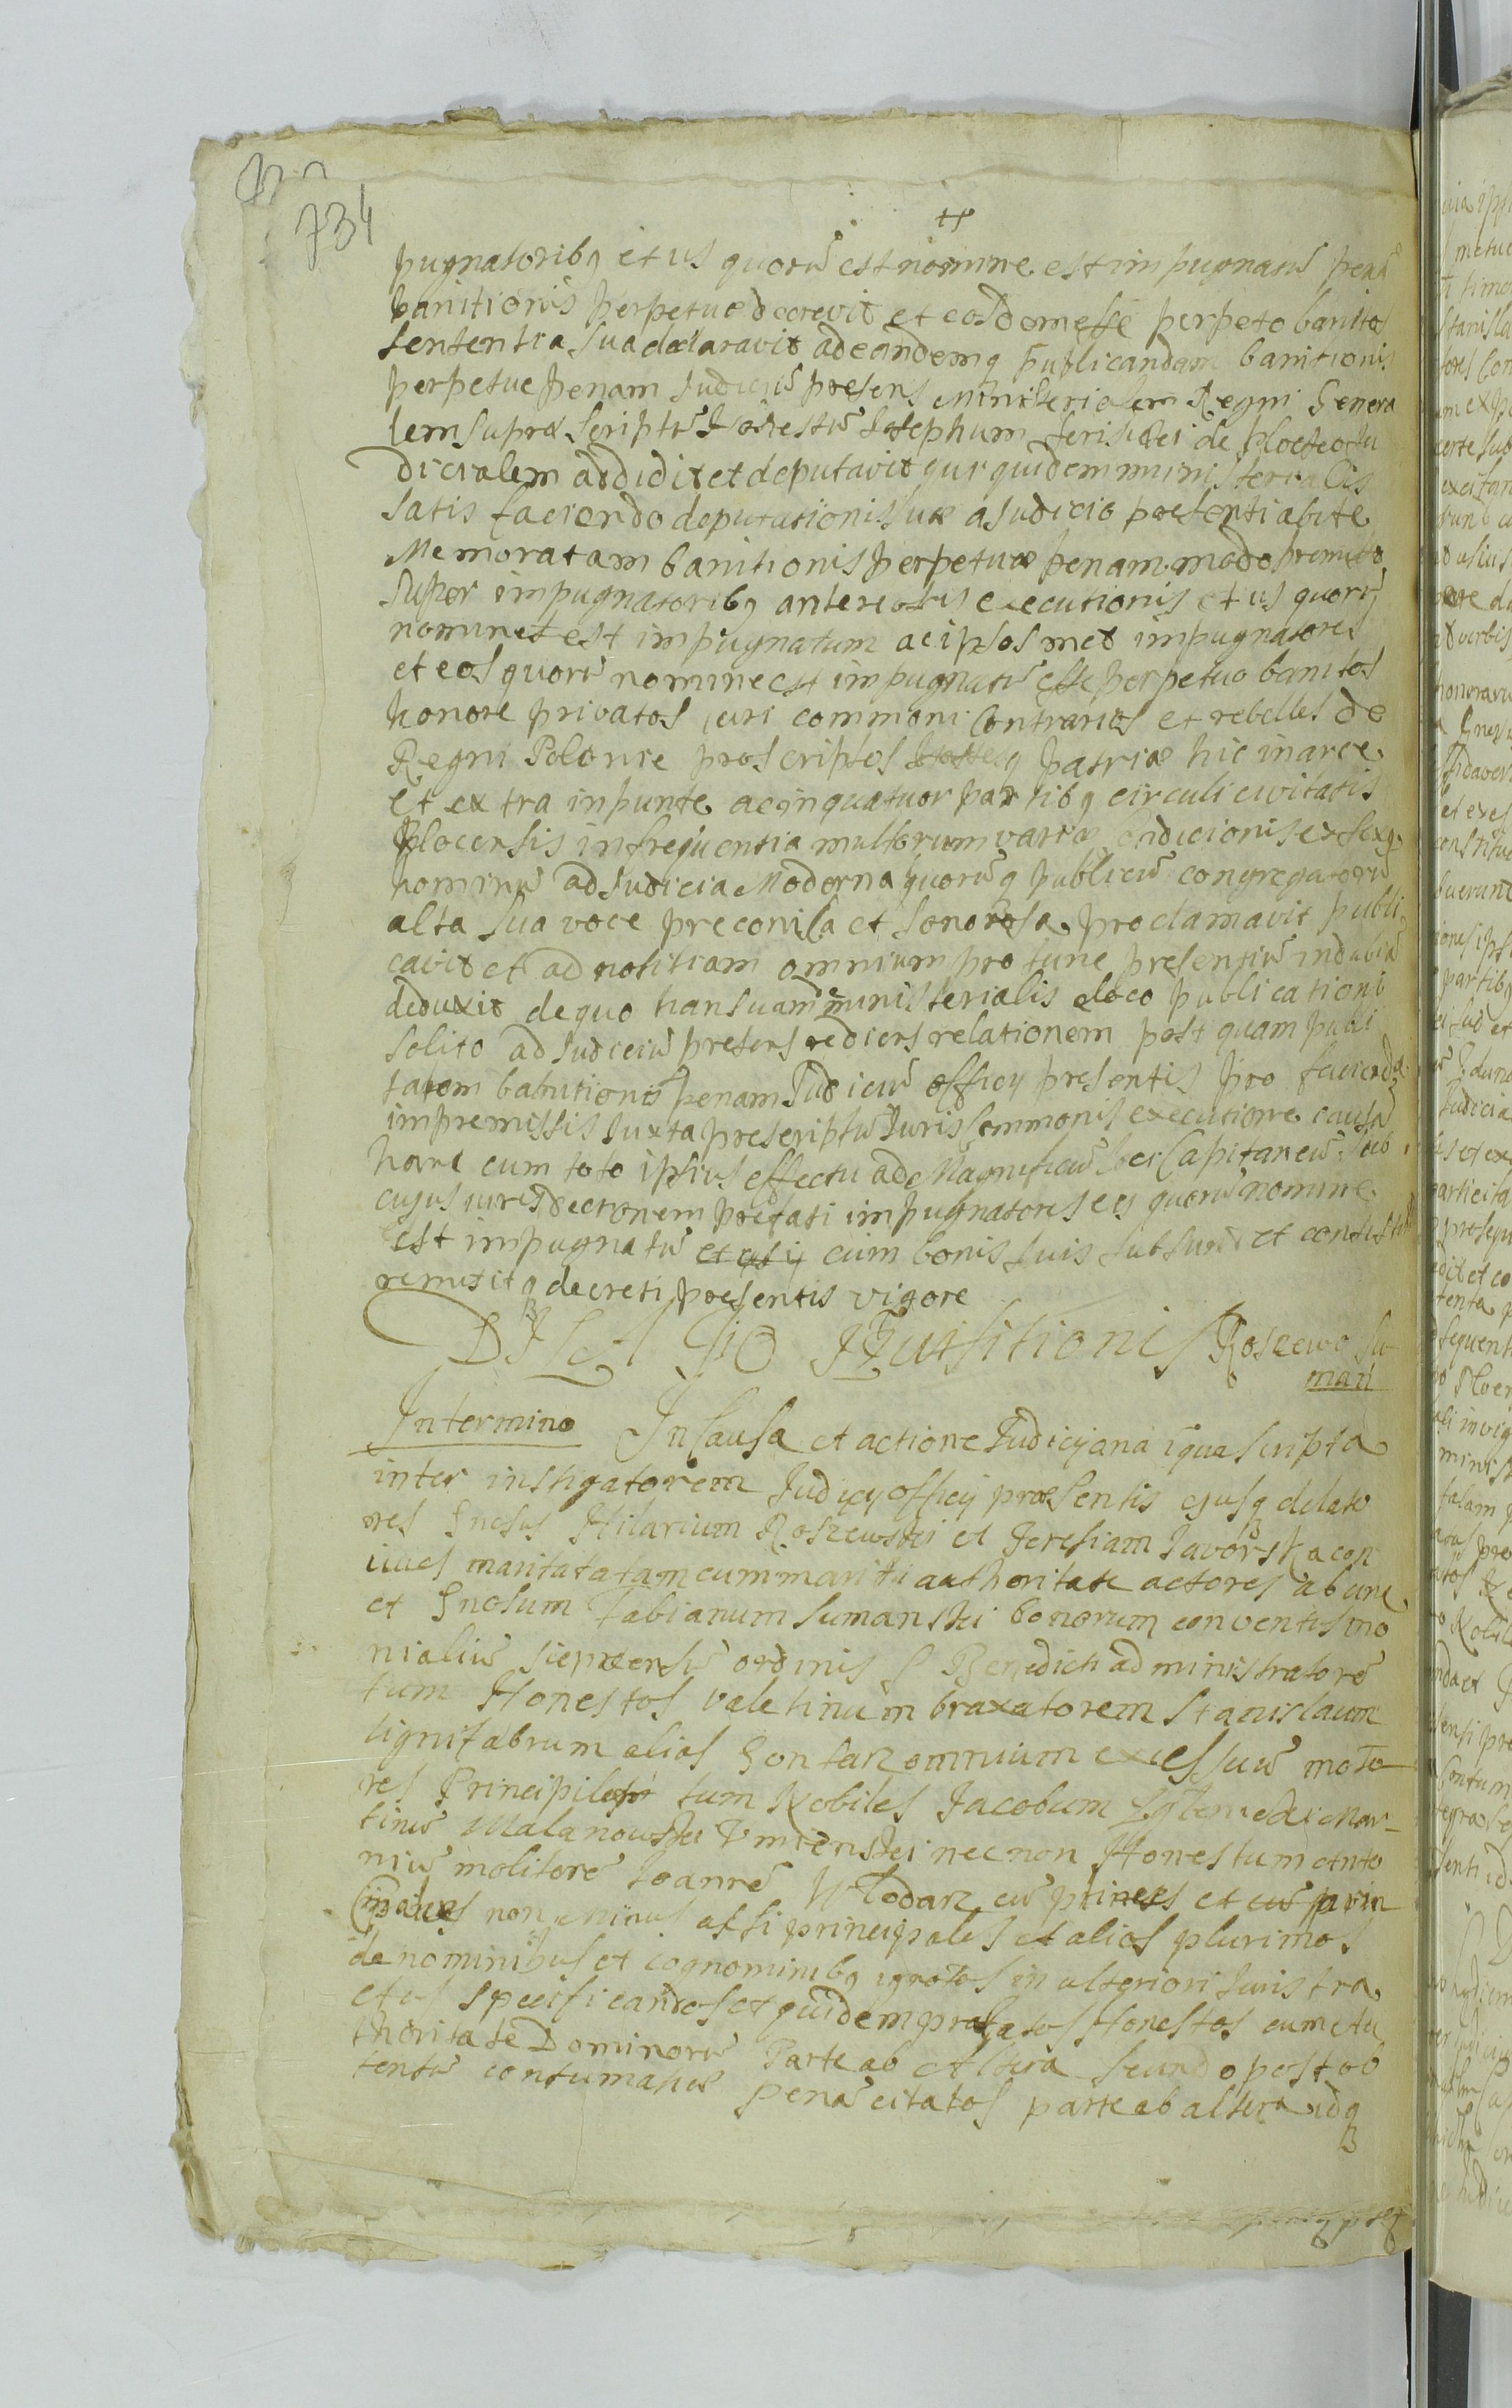 734
pugnatoribq et iis quorũ est nomine est impugnatũ penã
banitionis perpetue decrevit et eosdem esse perpeto banitos
sententia sua declaravit ad eandemq publicandam banitionis
perpetue penam Judiciũ presens Ministerialem Regni Genera
lem supra scriptũ Honestũ Josephum de Ju
dicialem addidit et deputavit qui quidem ministerialis
satis faciendo deputationi suæ a Judicio presenti abite
Memoratam banitionis perpetuæ penam modo premisso
super impugnatoribq anterioris executionis et iis quorũ
nomine est impugnatum ac ipsosmet impugnatores
et eos quorũ nomine est impugnatũ esse perpetuo banitos
honore privatos juri commoni Contrarios et rebelles de
Regni Polonie proscriptos Hostesq patriæ hic in arce
et extra in punte ac in quatuor partibq circuli civitatis
Plocensis in frequentia multorum variæ Condicionis et sexq
hominũ ad Judicia Moderna quorũq publicũ congregatorũ
alta sua voce preconisa et sonorosa proclamavit publi
cavit et ad notitiam omnium pro tunc presentiũ indubiã
deduxit de quo han suam ministerialis e loco publicationi
solito ad Judiciũ presens rediens relationem post quam publi
tatem banitionis penam Judiciũ officij presentis pro facienda
in premissis Juxta prescriptũ Juris Commonis executione causã
hanc cum toto ipsius effectu ad Magnificũ loci Capitaneũ sub
cujus jurisdectionem prefati impugnatores et ij quorũ nomine
est impugnatũ cum bonis suis subsunt et consistũ
remisit q decreti presentis vigore
DILATIO Inquisitionis Roszewo Su-
man
In termino In Causa et actione Judicij ana iqua scripta
inter instigatorem Judicij officij præsentis ejusq delato
res Gnosus Hilarium Roszewski et Teresiam Javorska con
iuges maritatatam cum mariti authoritate actores ab una
et Gnosum Fabianum Sumanski bonorum conventus mo
nialiũ Siepreensiũ ordinis S Benedicti administratorẽ
tum Honestos Valetinum braxatorem Stanislaum
lignifabrum alias Gontarz omnium excessuũ moto
res Principiles tum Nobiles Jacobum Mar-
tinũ Malanowski Umienski nec non Honestum Anto
niũ molitorẽ Joannẽ Wlodarz cũ et cũ prin
non Minus assi principales et alios plurimos
de nominibus et cognominibq ignotos in ulteriori Juris tra
ctus specificandos et quidem præfatos Honestos cum Au
thoritate Dominorũ Parte ab Altera secundo post ob
tentũ contumatiæ penã citatos parte ab altera idq